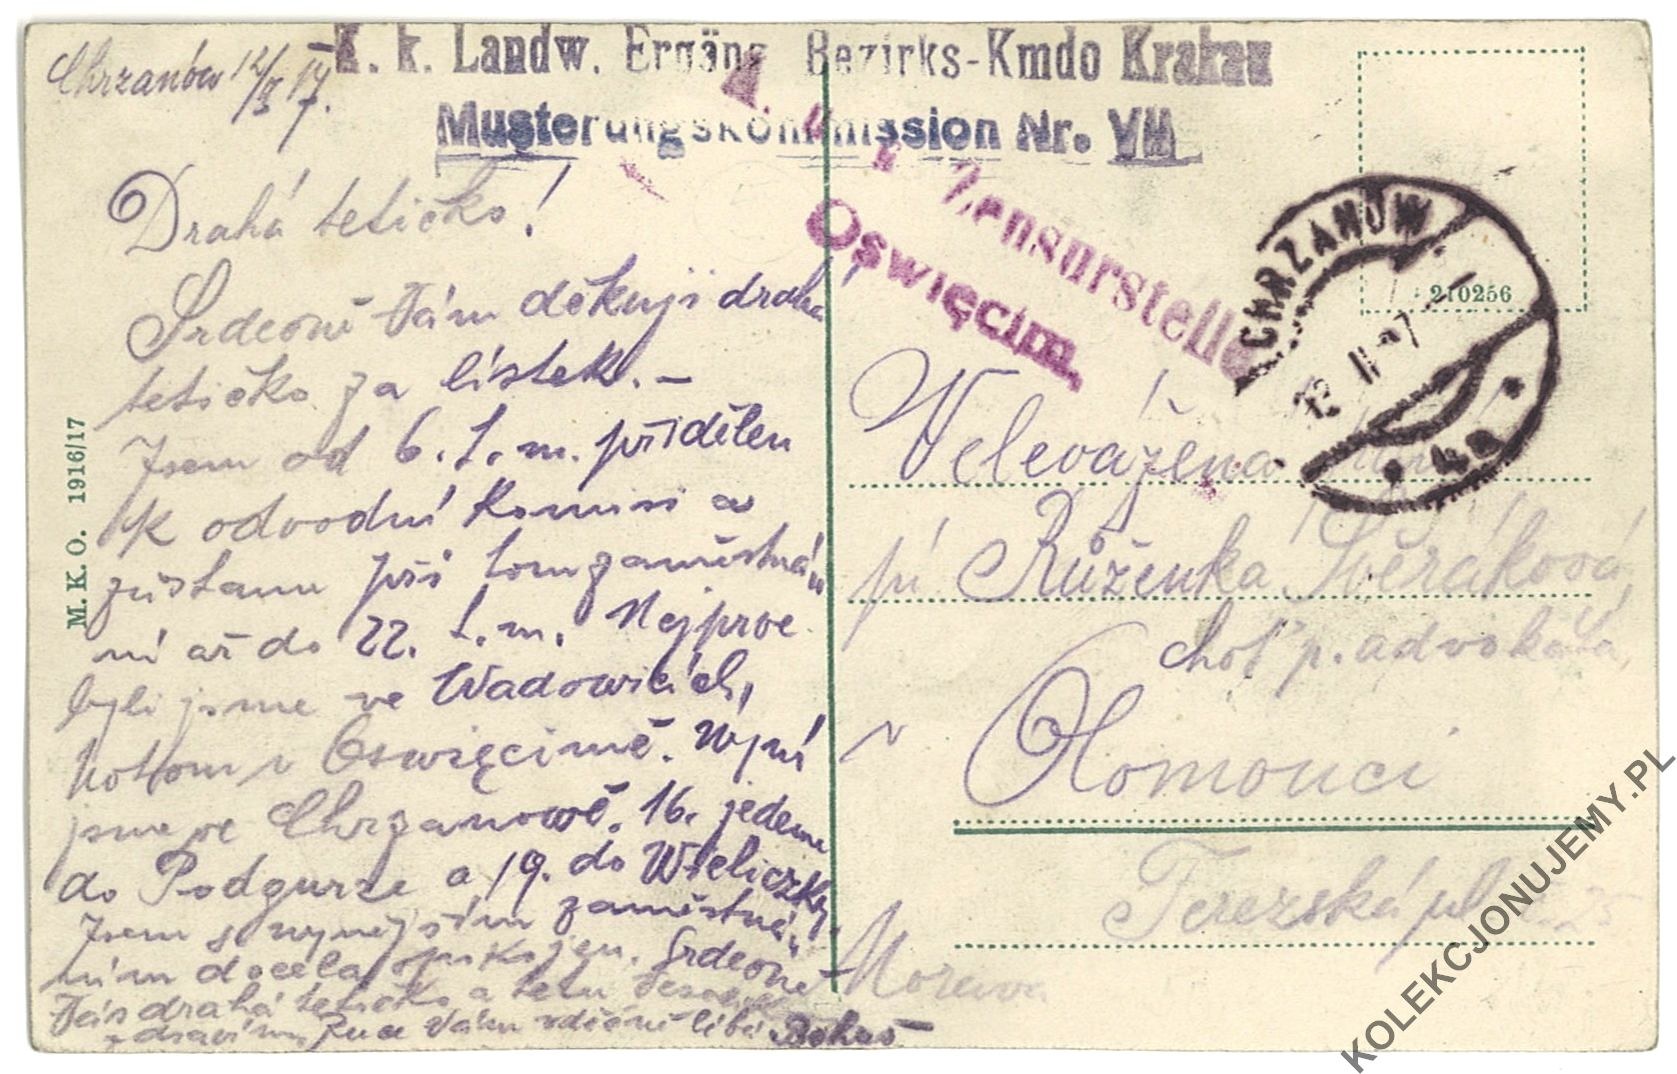 Chrzanów 12/II 17.
K. k. Landw. Ergänz. Bezirks-Kmdo Krakau
Musterungskommission Nr. VII
Zensurstelle
Oświęcim.
CHRZANÓW
210256
12 II 17
4a
M. K. O. 1916/17
Drahá tetičko!
Srdečně Vám děkuji drahá
tetičko za lístek. —
Jsem od 6. t. m. přidělen
k odvodní komisi a
zůstanu při tom zaměstná
ní až do 22. t. m. Nejprve
byli jsme ve Wadowicích,
potom v Oswięcimě. Nyní
jsme ve Chrzanowě. 16. jedeme
do Podgurze a 19. do Wieliczky.
Jsem s nynějším zaměstná
ním docela spokojen. Srdečně
Vás drahá tetičko a tetu
zdravím, Ruce Vám vděčně líbá
Velevážená
pí Růženka Svěráková,
choť p. advokáta,
v Olomouci
Terezská ul. 25
Morava
KOLEKCJONUJEMY.PL